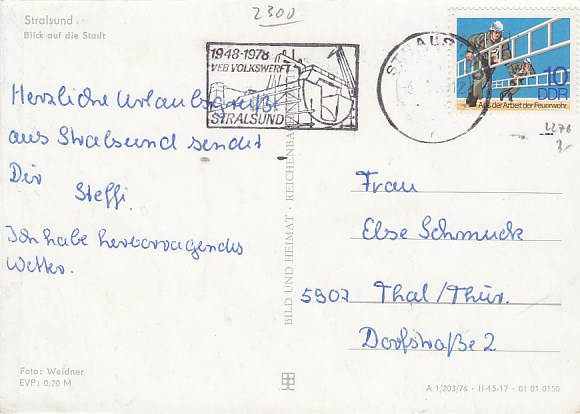 Stralsund
Blick auf die Stadt
2300
1948-1978
VEB VOLKSWERFT
STRALSUND
STRALSUND
10
DDR
Aus der Arbeit der Feuerwehr
2276
Herzliche Urlaubsgrüße
aus Stralsund sendet
Dir Steffi.
Ich habe hervorragendes
Wetter.
BILD UND HEIMAT · REICHENBACH
Frau
Else Schmuck
5907 Thal/Thür.
Dorfstraße 2
Foto: Weidner
EVP: 0,20 M
A 1/203/76 - II-45-17 - 01 01 0150